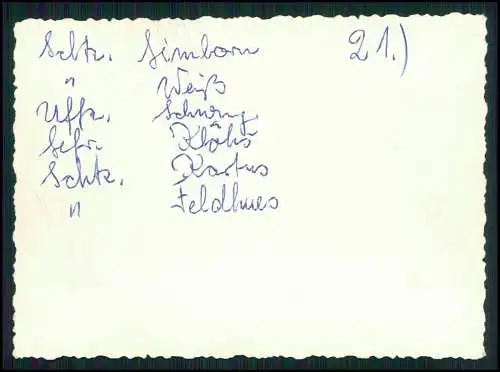 Schtz. Simborn 21.)
" Weiß
Uffz. Schwung
Gefr. Klöhs
Schtz. Kartus
" Feldhues